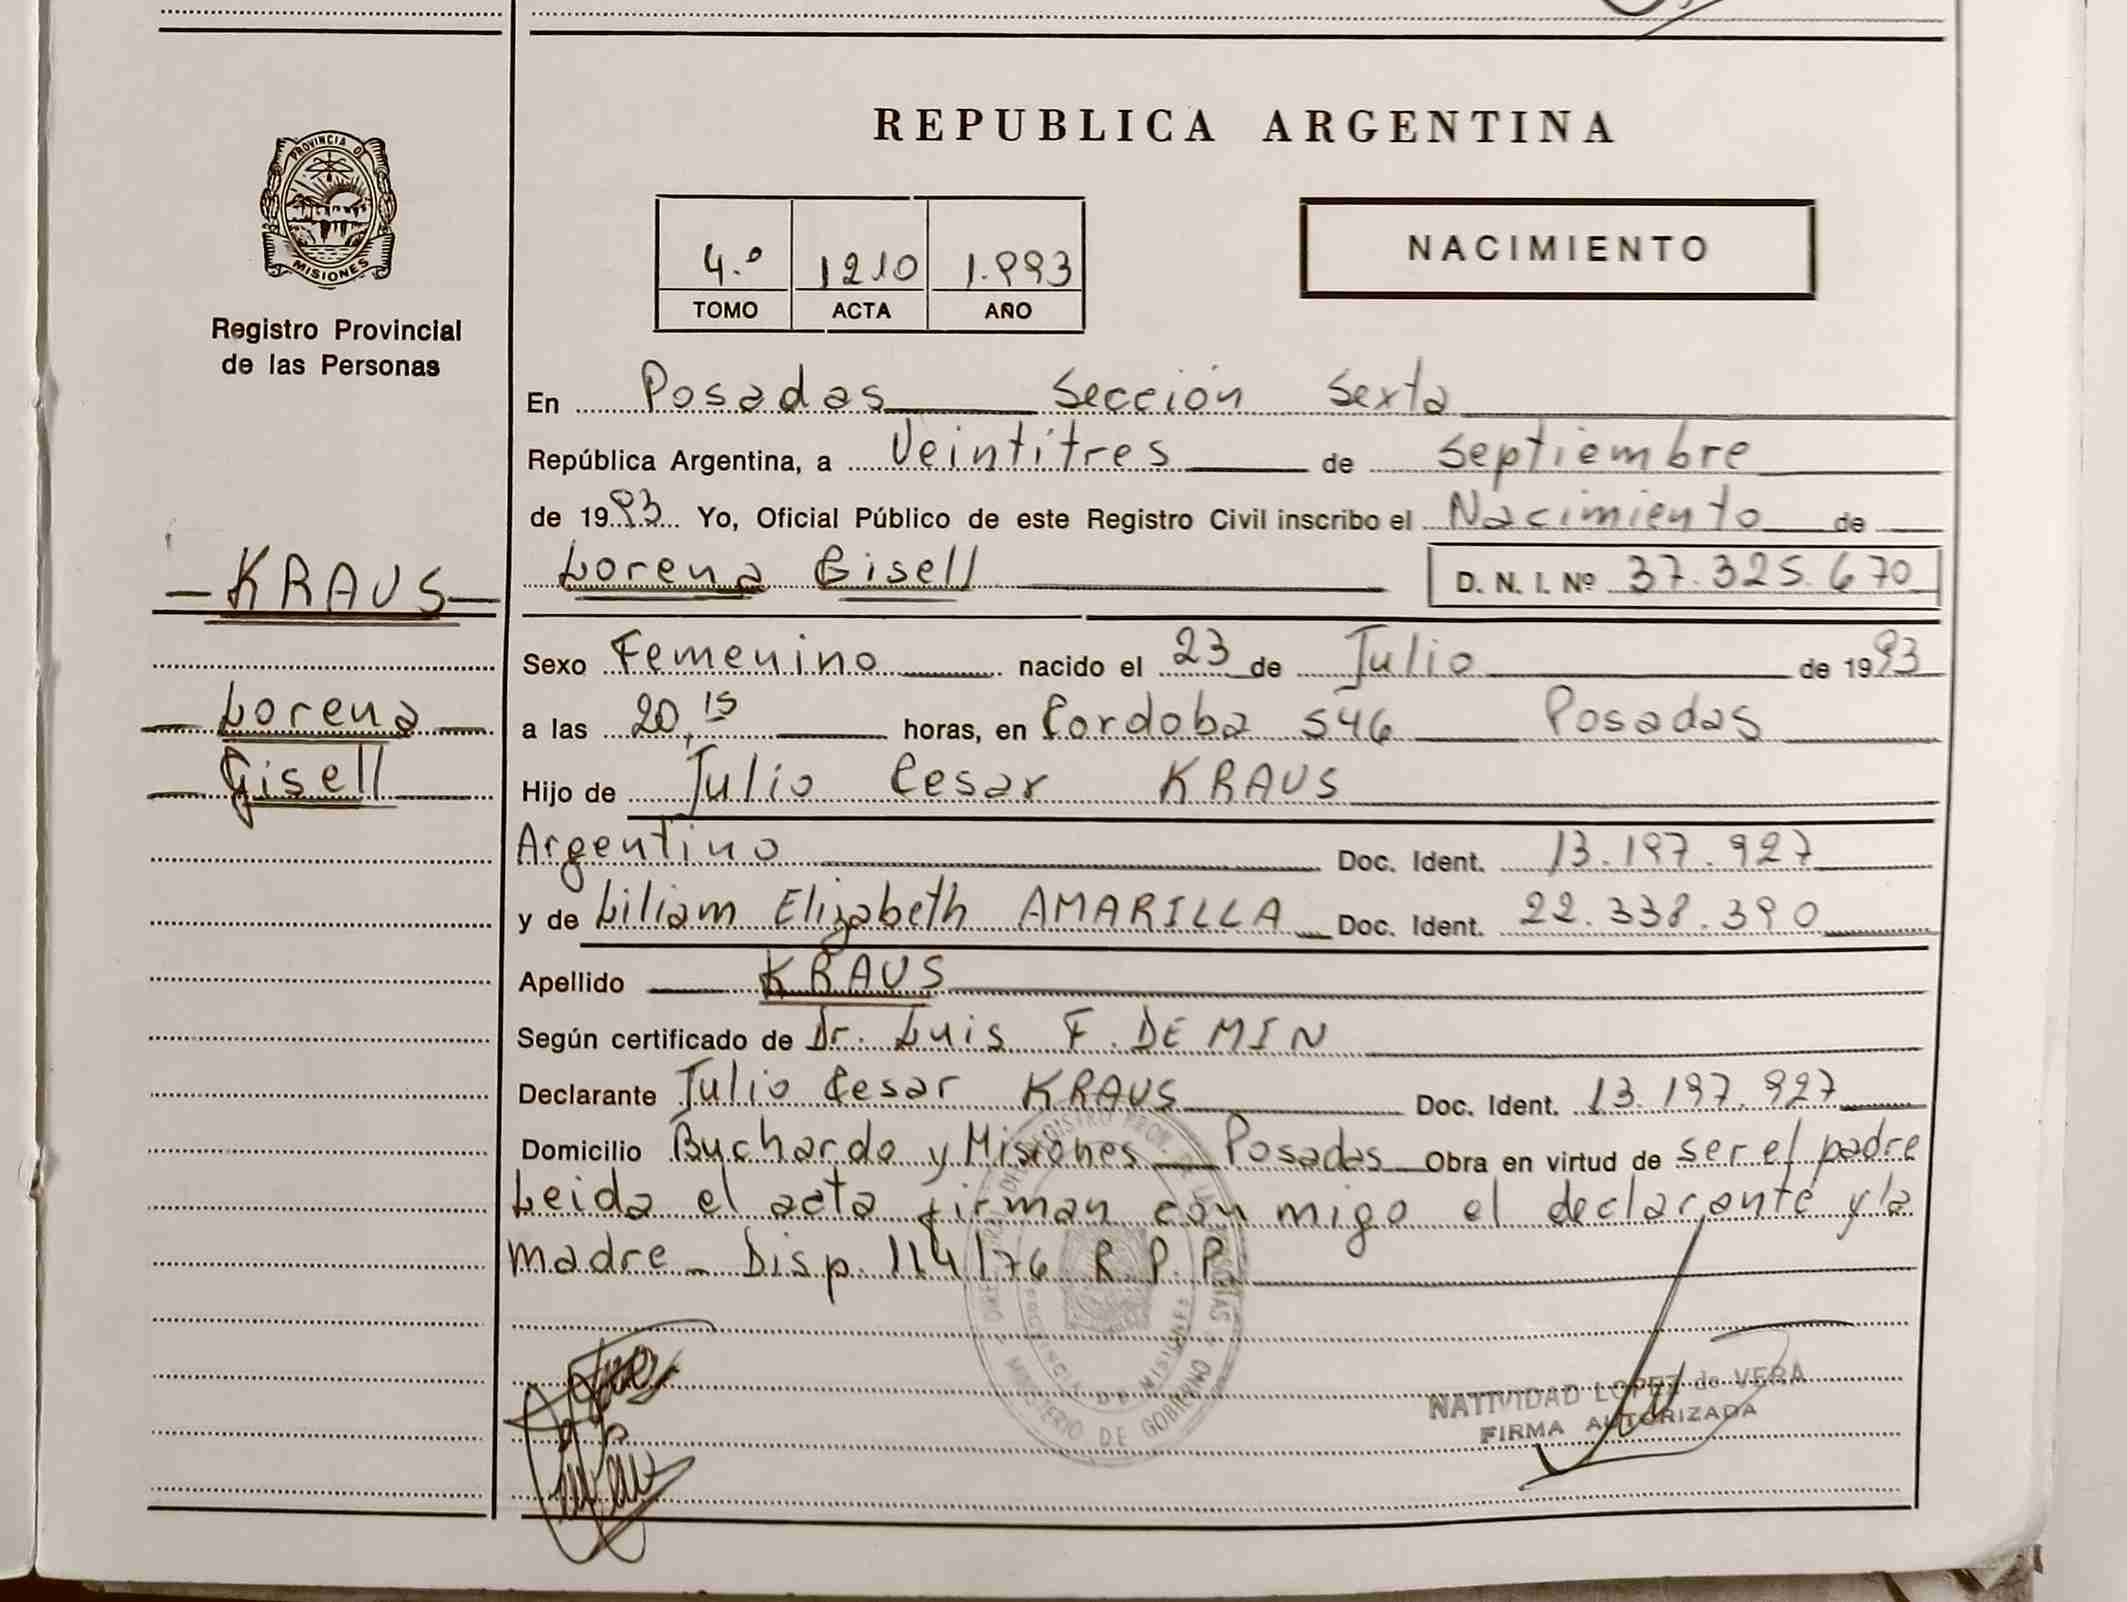 REPUBLICA ARGENTINA
PROVINCIA DE
MISIONES
Registro Provincial
de las Personas
4.º 1210 1.993
TOMO ACTA AÑO
NACIMIENTO
En Posadas Sección Sexta
República Argentina, a Veintitres de Septiembre
de 1993 Yo, Oficial Público de este Registro Civil inscribo el Nacimiento de
KRAUS
Lorena Gisell D. N. I. Nº 37.325.670
Sexo Femenino nacido el 23 de Julio de 1993
Lorena
a las 20,15 horas, en Cordoba 546 Posadas
Gisell
Hijo de Julio Cesar KRAUS
Argentino Doc. Ident. 13.197.927
y de Liliam Elizabeth AMARILLA Doc. Ident. 22.338.390
Apellido KRAUS
Según certificado de Dr. Luis F. DEMIN
Declarante Julio Cesar KRAUS Doc. Ident. 13.197.927
Domicilio Buchardo y Misiones Posadas Obra en virtud de ser el padre
Leida el acta firman con migo el declarante y la
madre - Disp. 114/76 R.P.P.
PROVINCIA DE MISIONES
MINISTERIO DE GOBIERNO
NATIVIDAD LOPEZ de VERA
FIRMA AUTORIZADA